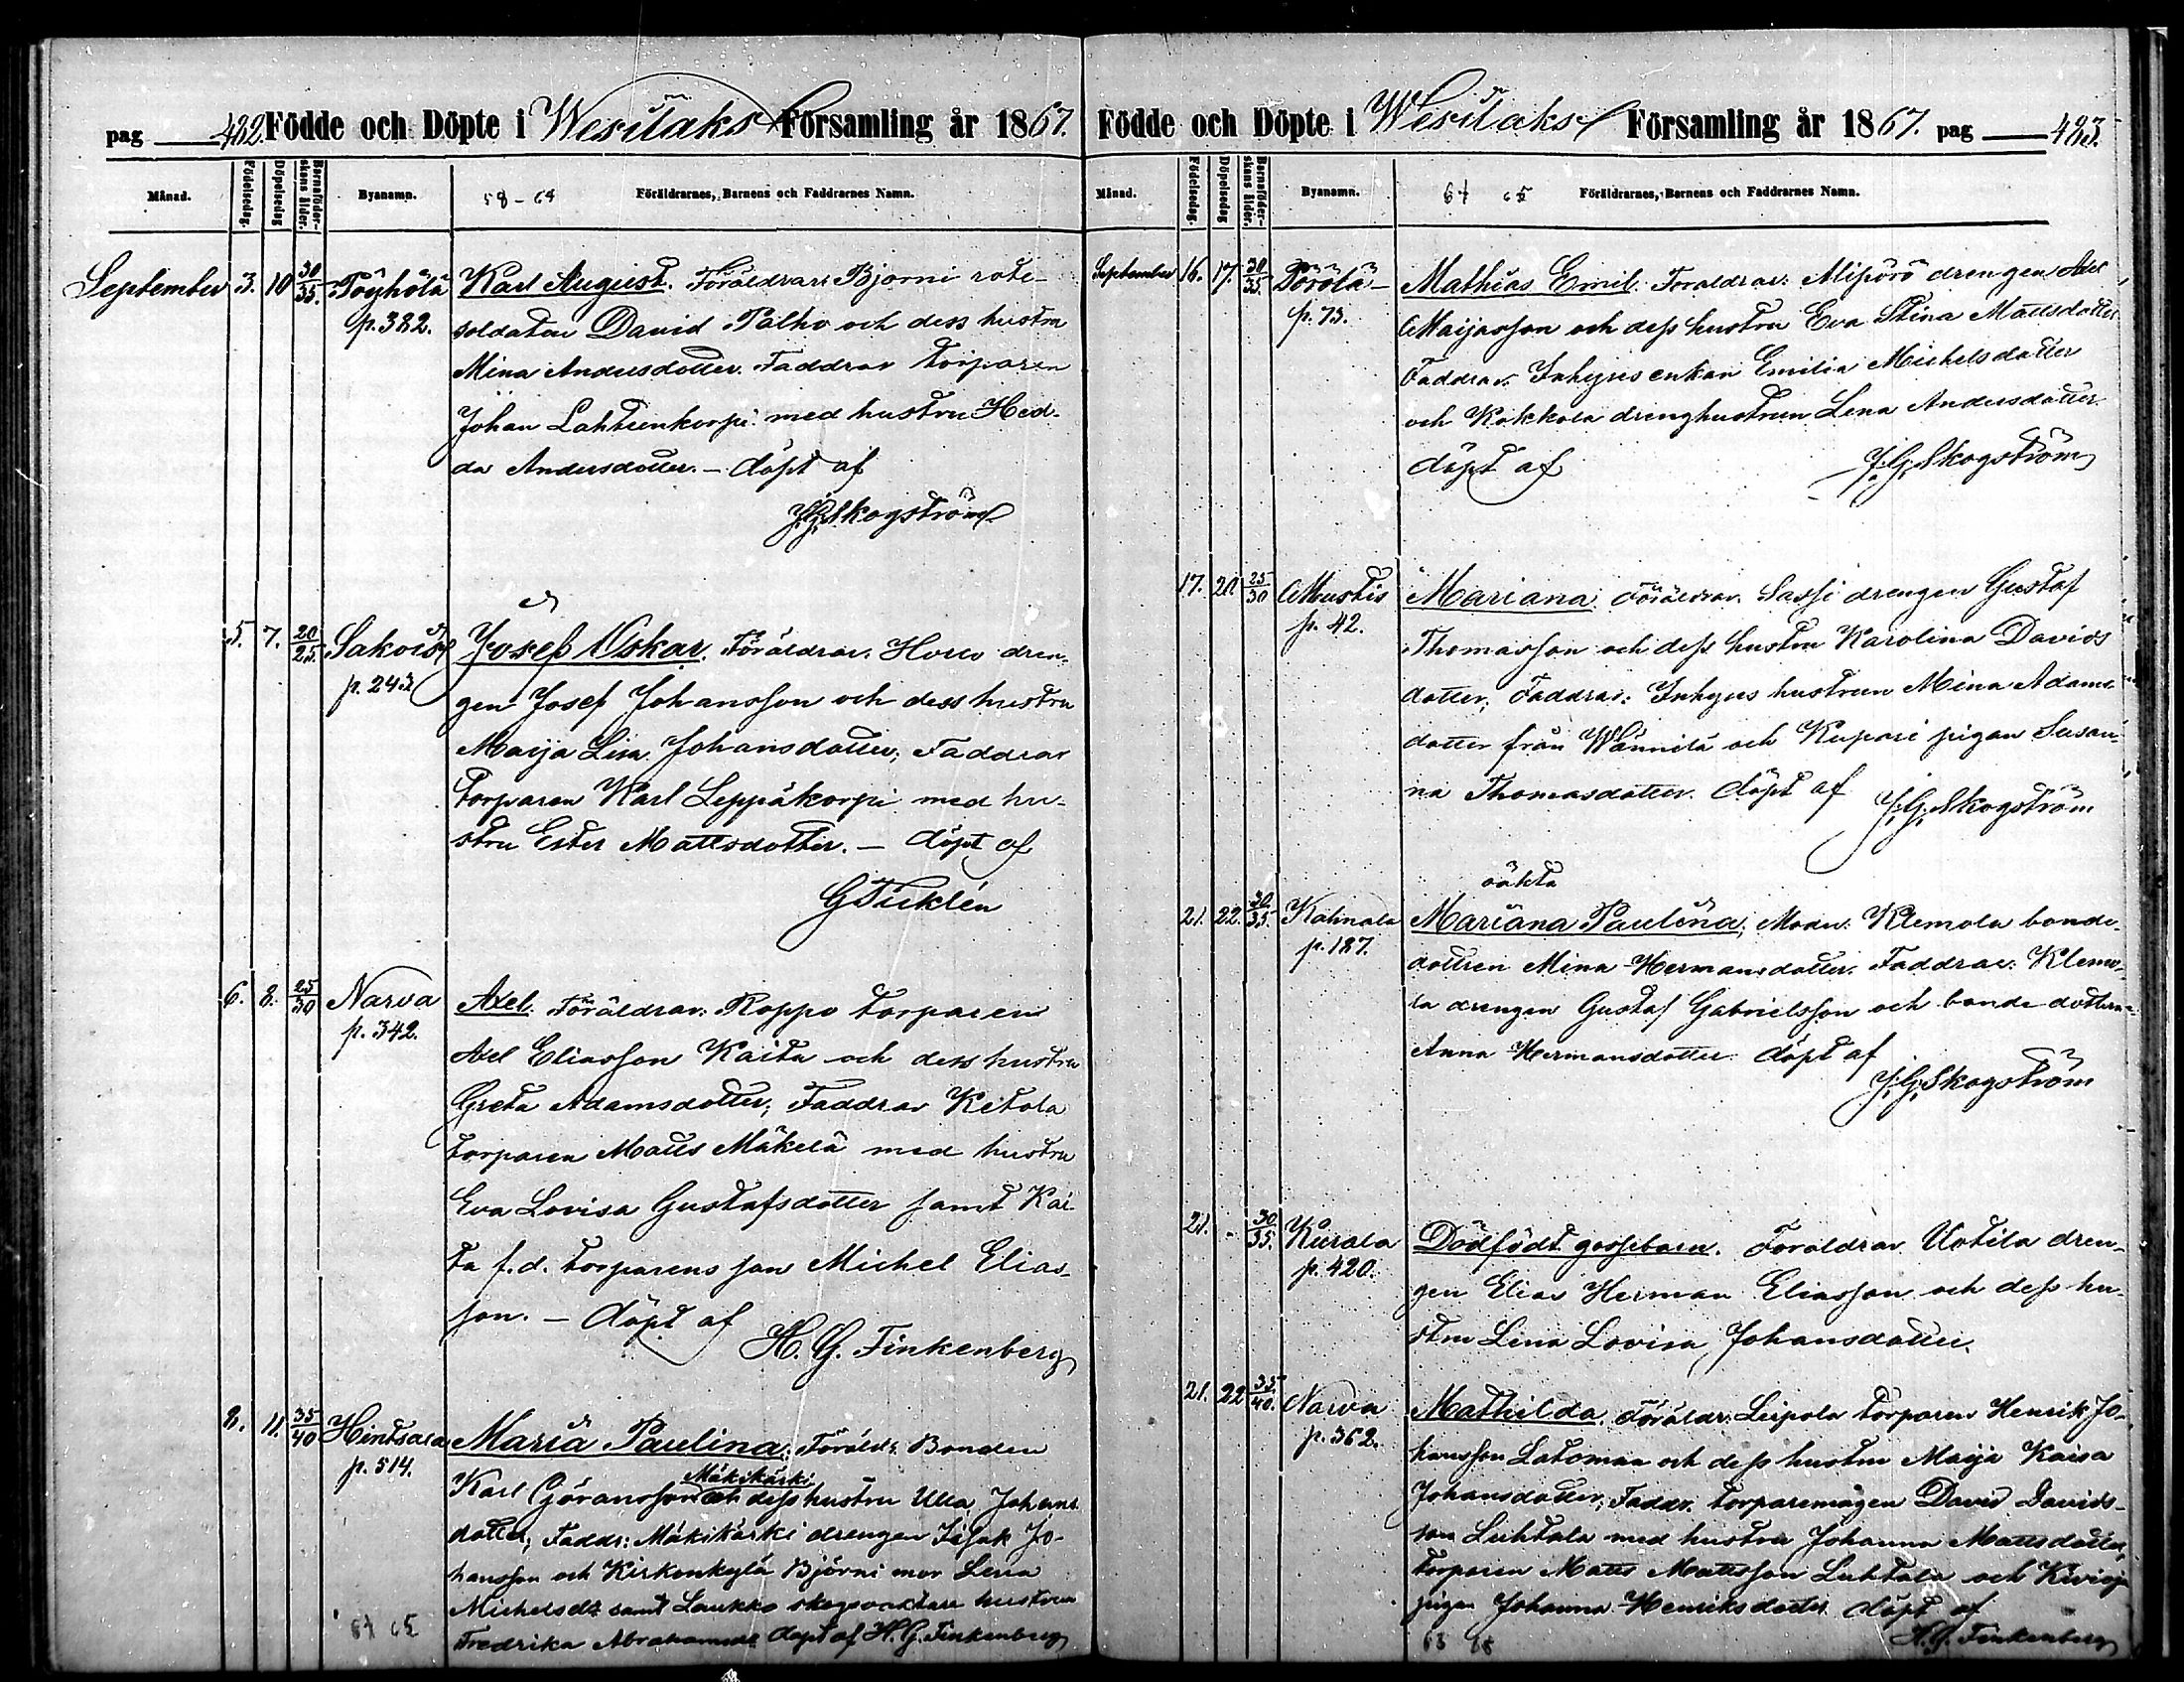 pag 482. Födde och Döpte i Wesilaks Församling år 1867.
Månad. Födelsedag. Döpelsedag Barnaföderskans ålder. Byanamn. 58-64 Föräldrarnes, Barnens och Faddrarnes Namn.
September 3. 10 30/35. Töyhölä Karl August. Föräldrar: Björni rote-
p. 382. soldaten David Palho och dess hustru
Mina Andersdotter. Faddrar torparen
Johan Lahteenkorpi med hustru Hed-
da Andersdotter. – döpt af
J.G. Skogström
5. 7. 20/25. Sakois Josef Oskar. Föräldrar: Horo dren-
p. 243 gen Josef Johansson och dess hustru
Maija Lisa Johansdotter, Faddrar
torparen Karl Leppäkorpi med hu-
stru Ester Mattsdotter. – döpt af
G Ticklén
6. 8. 25/30 Narva Axel. Föräldrar: Roppo torparen
p. 342. Axel Eliasson Kaita och dess hustru
Greta Adamsdotter; Faddrar Ketola
torparen Matts Mäkelä med hustru
Eva Lovisa Gustafsdotter samt Kai-
ta f.d. torparens son Michel Elias-
son. – döpt af
H. G. Finkenberg
8. 11. 35/40 Hintsara Maria Paulina. Föräldr: Bonden
p. 514. Karl Göransson Mäkikärki och dess hustru Ulla Johans
dotter; Faddr: Mäkikärki drengen Isak Jo-
hansson och Kirkonkylä Björni mor Lena
Michelsdr samt Laukko skogvaktare hustrun
Fredrika Abrahamsdr döpt af H. G. Finkenberg
67 65
Födde och Döpte i Wesilaks Församling år 1867. pag 483.
Månad. Födelsedag. Döpelsedag Barnaföderskans ålder. Byanamn. 67 65 Föräldrarnes, Barnens och Faddrarnes Namn.
September 16. 17. 30/35. Pörölä Mathias Emil. Föräldrar: Alipörö drengen Axel
p. 73. Maijasson och dess hustru Eva Stina Mattsdotter
Faddrar: Inhyses enkan Emilia Michelsdotter
och Kokkola drenghustrun Lena Andersdotter.
döpt af J.G. Skogström
17. 20 25/30 Mustis Mariana. Föräldrar: Sassi drengen Gustaf
p. 42. Thomasson och dess hustru Karolina Davids
dotter; Faddrar: Inhyses hustrun Mina Adams-
dotter från Wännilä och Kupari pigan Susan-
na Thomasdotter. döpt af J.G. Skogström
oäkta
21. 22. 30/35. Kalmala Mariana Paulina; Modr: Klemola bonde-
p. 187. dottren Mina Hermansdotter. Faddrar: Klemo-
la drengen Gustaf Gabrielsson och bonde dottern
Anna Hermansdotter. döpt af
J.G. Skogström
21. - 30/35. Kurala Dödfödt gossebarn. Föräldrar Uotila dren-
p. 420. gen Elias Herman Eliasson och dess hu-
stru Lena Lovisa Johansdotter.
21. 22 35/40. Narva Mathilda. Föräldr: Leipola torparen Henrik Jo-
p. 362. hansson Latomaa och dess hustru Maija Kaisa
Johansdotter; Faddr. torparemågen David Davids-
son Luhtala med hustru Johanna Mattsdotter,
torparen Matts Mattsson Luhtala och
pigan Johanna Henriksdotter döpt af
H. G. Finkenberg